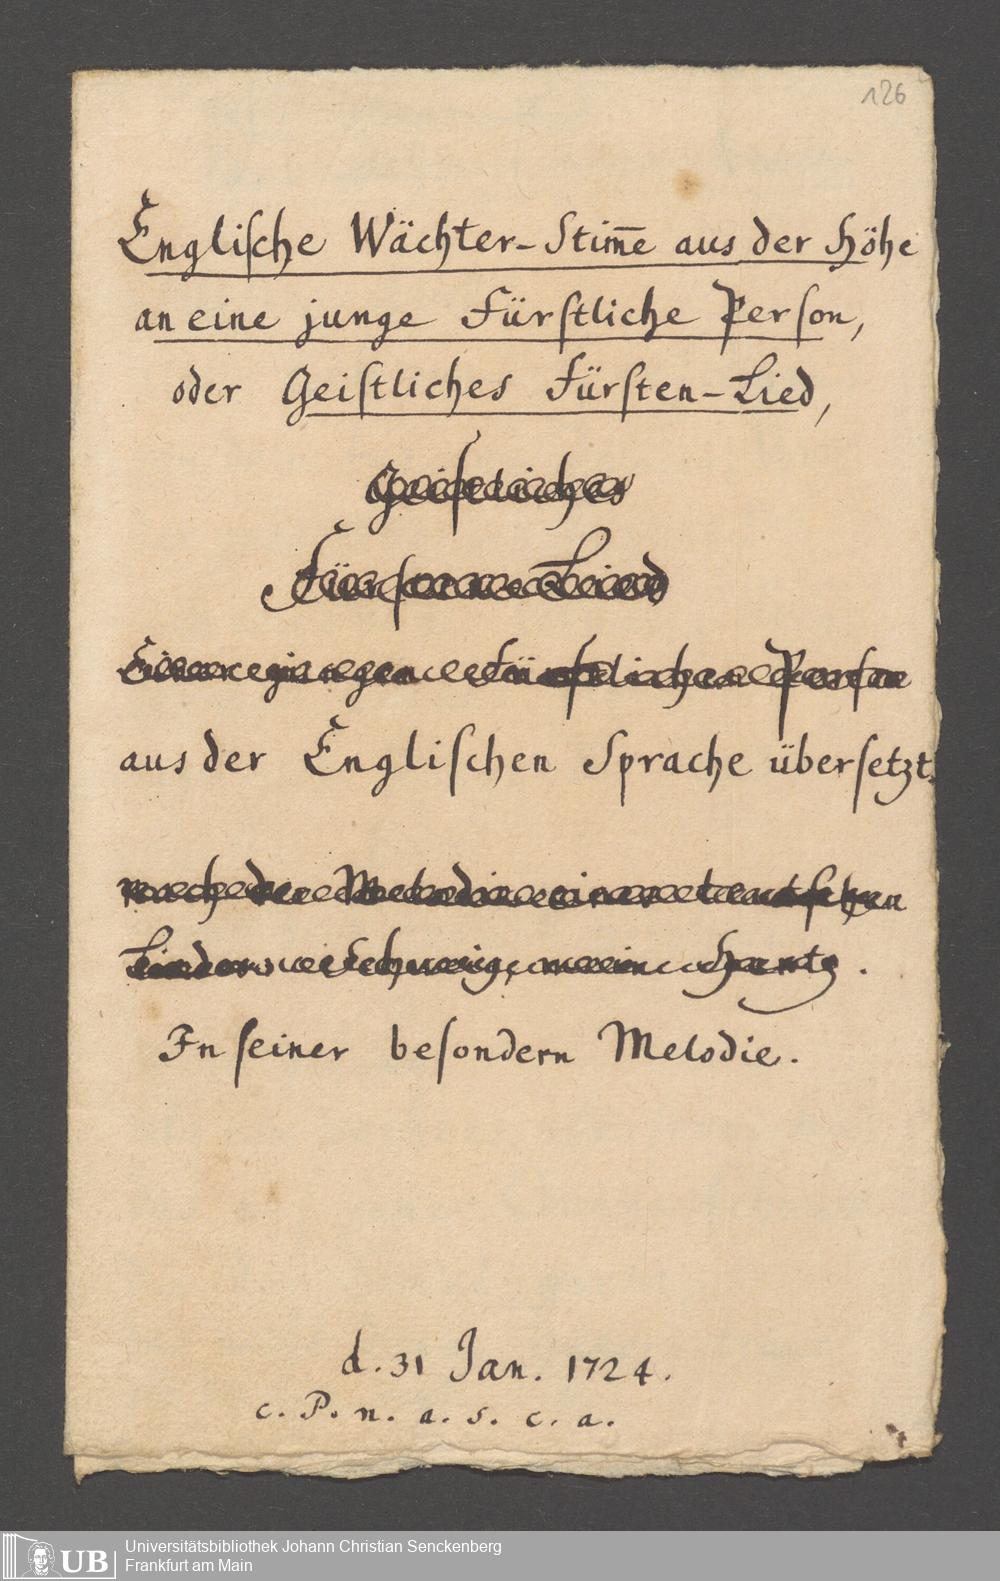 126
Englische Wächter-Stim̄e aus der Höhe
an eine junge Fürstliche Person,
oder Geistliches Fürsten-Lied,
Geistliches
Fürsten-Lied
Einer jungen Fürstlichen Person
aus der Englischen Sprache übersetzt.
nach der Melodie eines teutschen
Liedes: Schwing, mein Hertz.
In seiner besondern Melodie.
d. 31 Jan. 1724.
c. P. n. a. s. c. a.
UB
Universitätsbibliothek Johann Christian Senckenberg
Frankfurt am Main